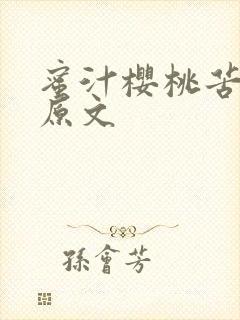 蜜汁櫻桃苦
原文
孫會芳